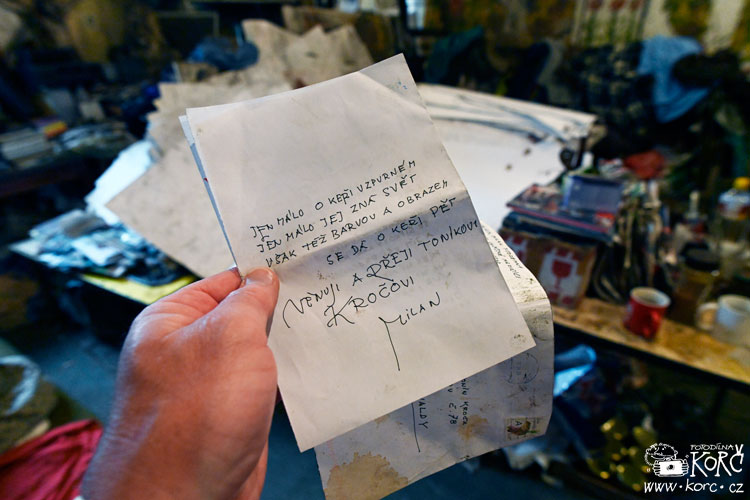 JEN MÁLO O KEŘI VZPURNÉM
JEN MÁLO JEJ ZNÁ SVĚT
VŠAK TÉŽ BARVOU A OBRAZEM
SE DÁ O KEŘI PĚT
VĚNUJI A PŘEJI TONÍKOVI
KROČOVI
MILAN
Č. 78
FOTODÍLNA
KORČ
www.korc.cz